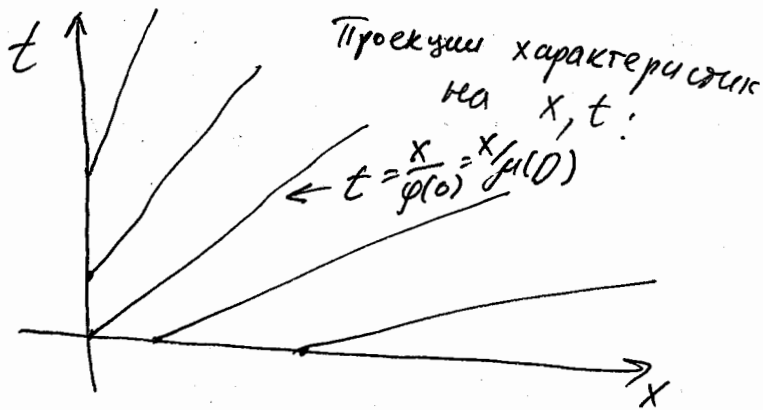 t
Проекции характеристик
на x, t :
← t = x/φ(0) = x/μ(0)
x